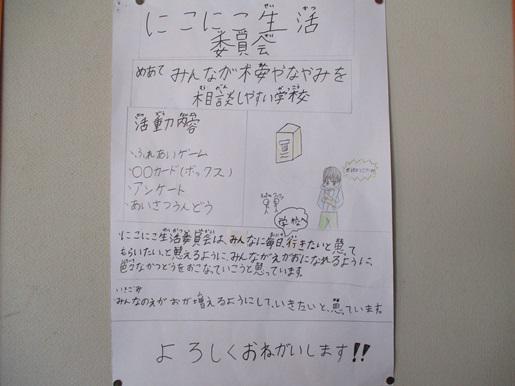 にこにこ生活
委員会
めあて みんなが様やなやみを
相談しやすい学校
活動内容
・ふれあいゲーム
・〇〇カード(ボックス)
・アンケート
・あいさつうんどう
学校へ
にこにこ生活委員会は、みんなに毎日、行きたいと思って
もらいたい、と思えるように、みんながえがおになれるように、
色々なかつどうをおこなっていこうと思っています。
みんなのえがおが増えるようにして、いきたいと、思ています。
よろしくおねがいします!!